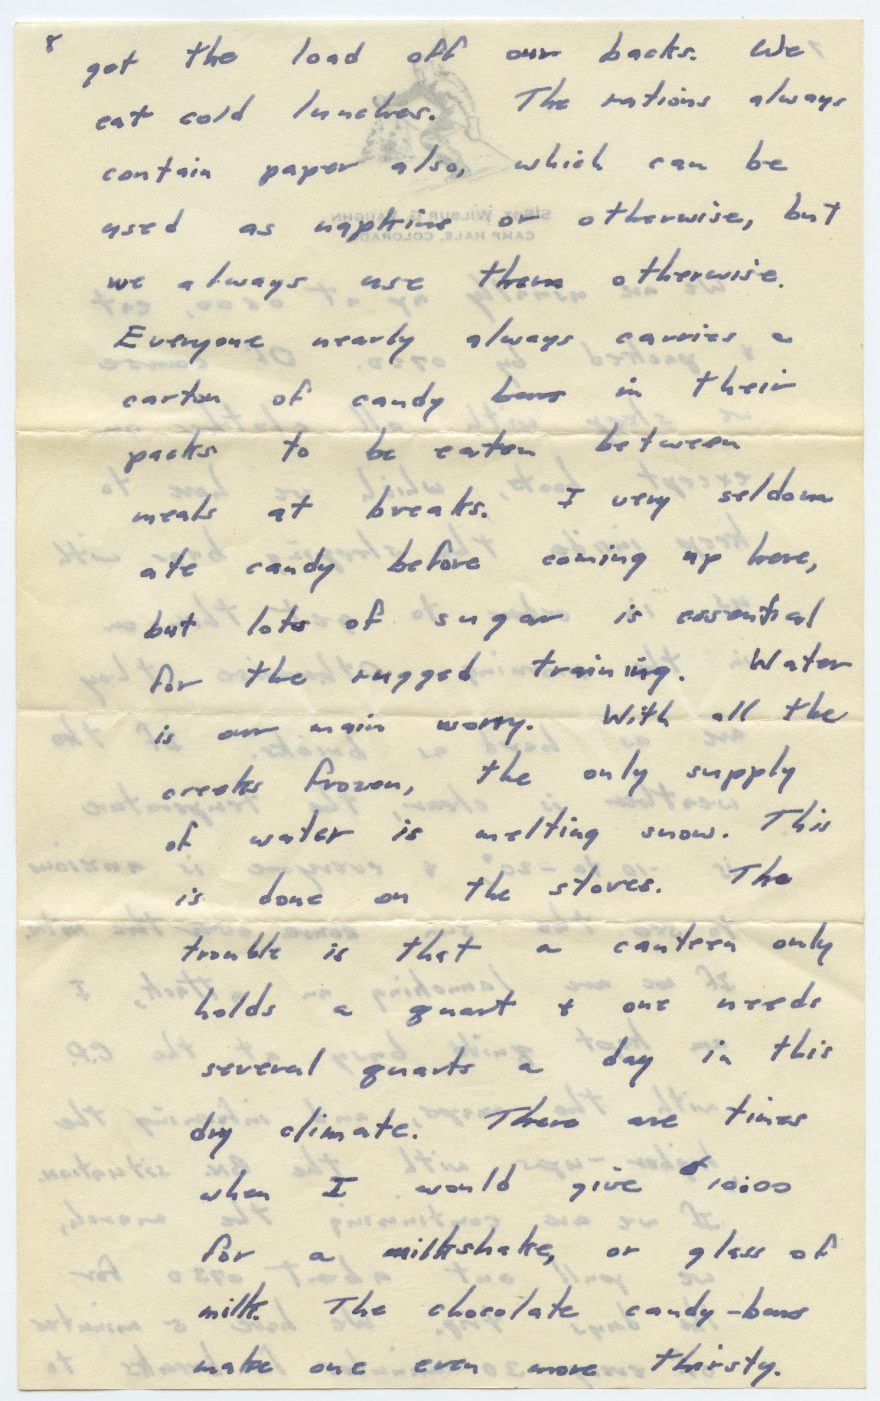 8
get the load off our backs. We
eat cold lunches. The rations always
contain paper also, which can be
used as napkins or otherwise, but
we always use them otherwise.
Everyone nearly always carries a
carton of candy bars in their
packs to be eaten between
meals at breaks. I very seldom
ate candy before coming up here,
but lots of sugar is essential
for the rugged training. Water
is our main worry. With all the
creeks frozen, the only supply
of water is melting snow. This
is done on the stoves. The
trouble is that a canteen only
holds a quart & one needs
several quarts a day in this
dry climate. There are times
when I would give $10.00
for a milkshake, or glass of
milk. The chocolate candy-bars
make one even more thirsty.